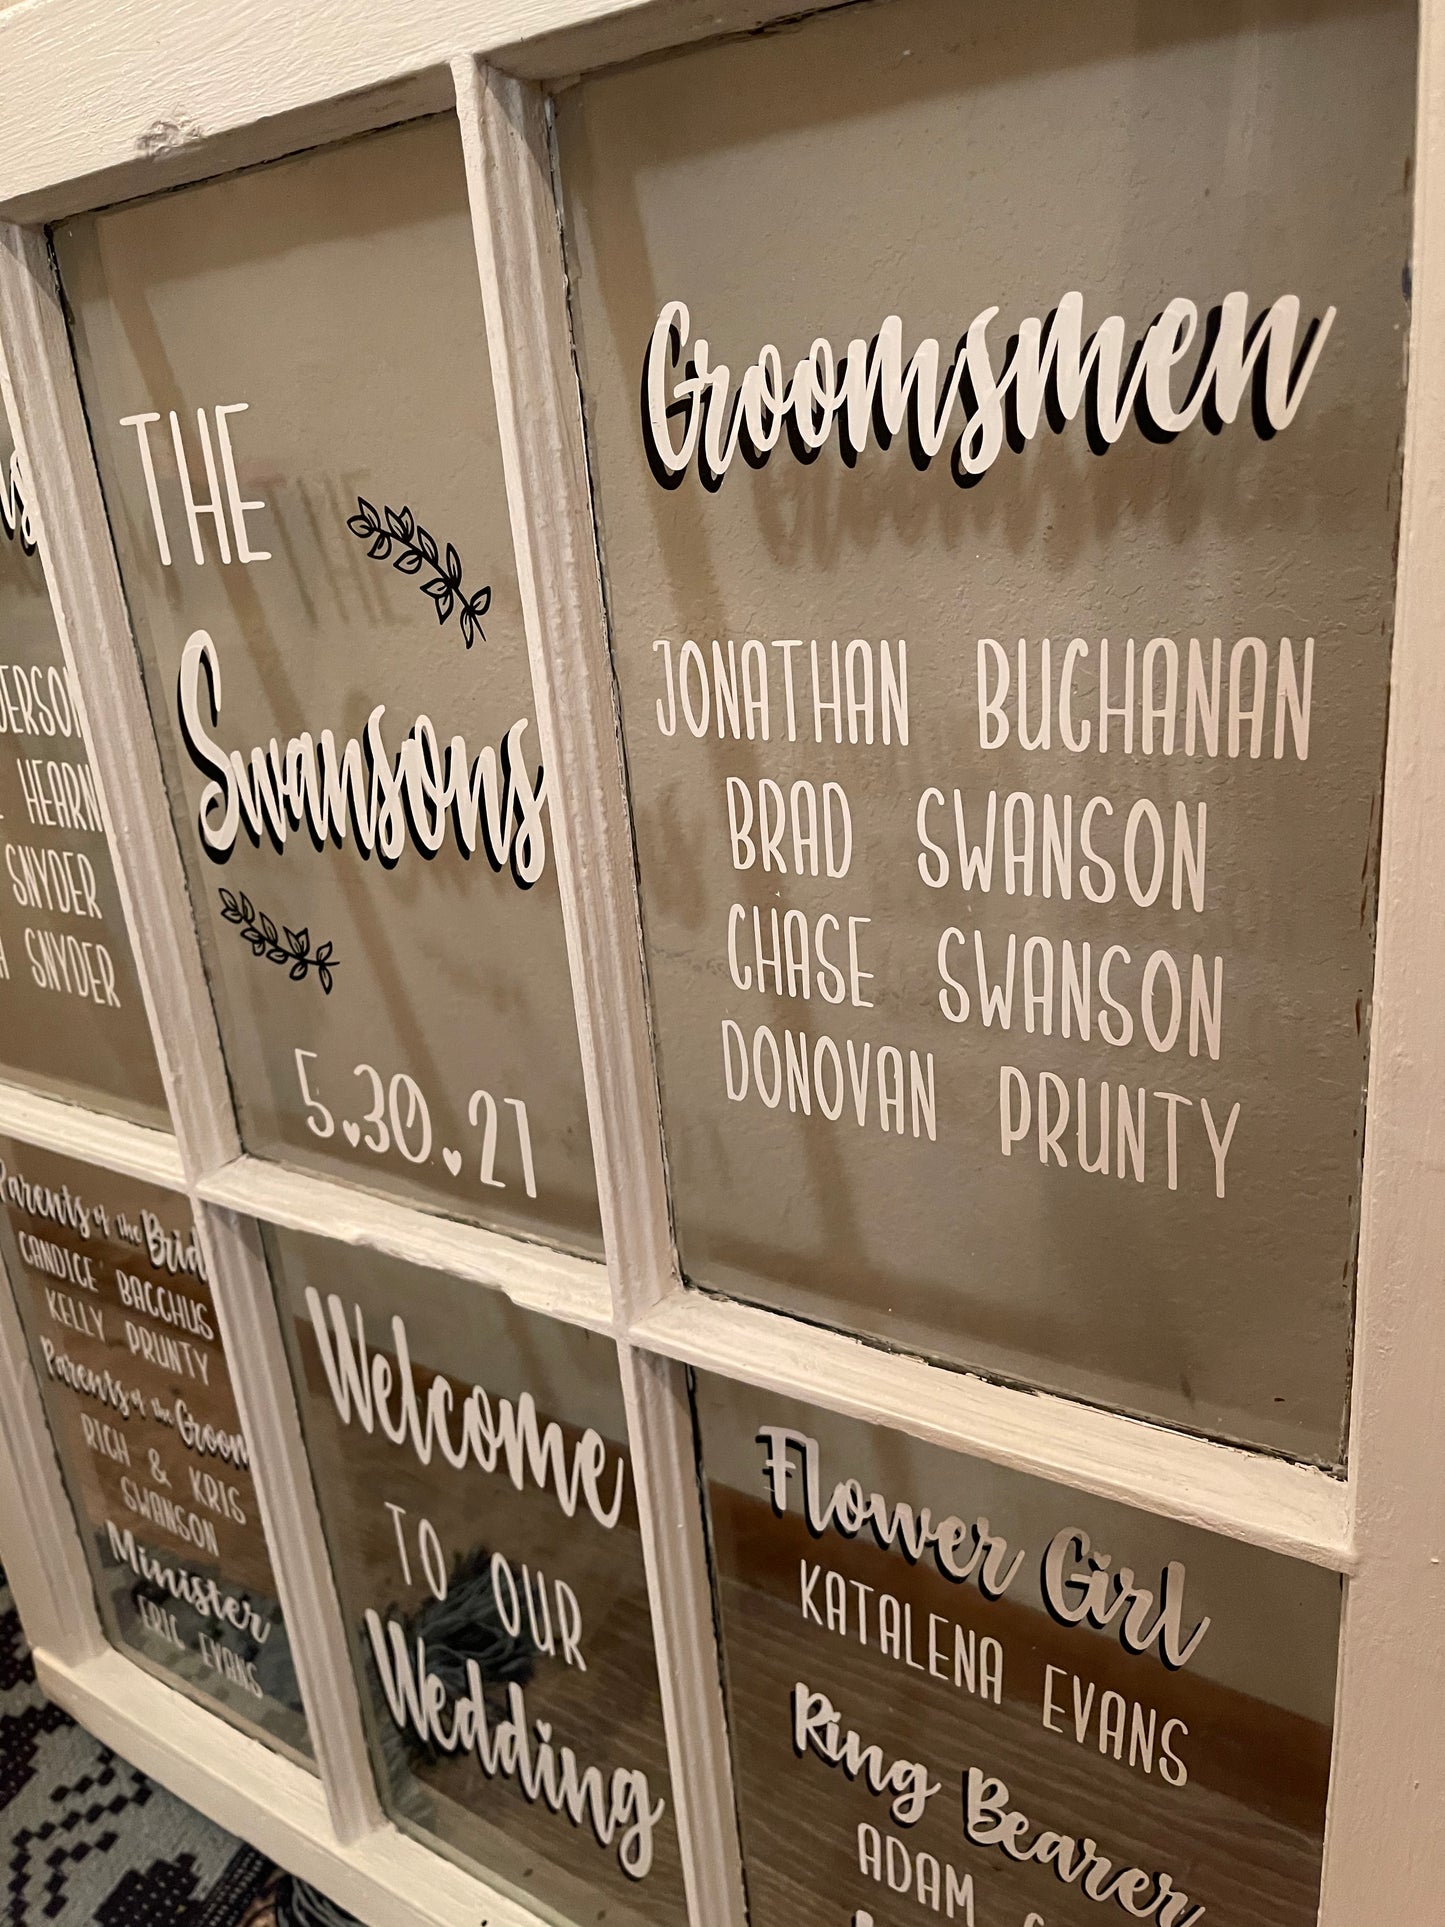 THE
Swansons
5.30.21
Groomsmen
JONATHAN BUCHANAN
BRAD SWANSON
CHASE SWANSON
DONOVAN PRUNTY
HEARN
SNYDER
SNYDER
Parents of the Brid
CANDICE BACCHUS
KELLY PRUNTY
Parents of the Groom
RICH & KRIS
SWANSON
Minister
ERIC EVANS
Welcome
TO OUR
Wedding
Flower Girl
KATALENA EVANS
Ring Bearer
ADAM